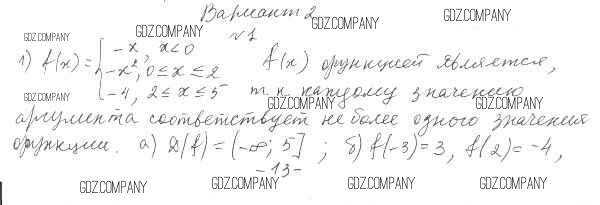 Вариант 2
GDZ.COMPANY GDZ.COMPANY GDZ.COMPANY GDZ.COMPANY
№1
1) f(x) = { -x, x<0
-x², 0≤x≤2
-4, 2≤x≤5
f(x) функцией является,
GDZ.COMPANY
т.к каждому значению
GDZ.COMPANY GDZ.COMPANY
аргумента соответствует не более одного значения
функции. а) D(f) = (-∞; 5] ; б) f(-3) = 3, f(2) = -4,
-13-
GDZ.COMPANY GDZ.COMPANY GDZ.COMPANY GDZ.COMPANY